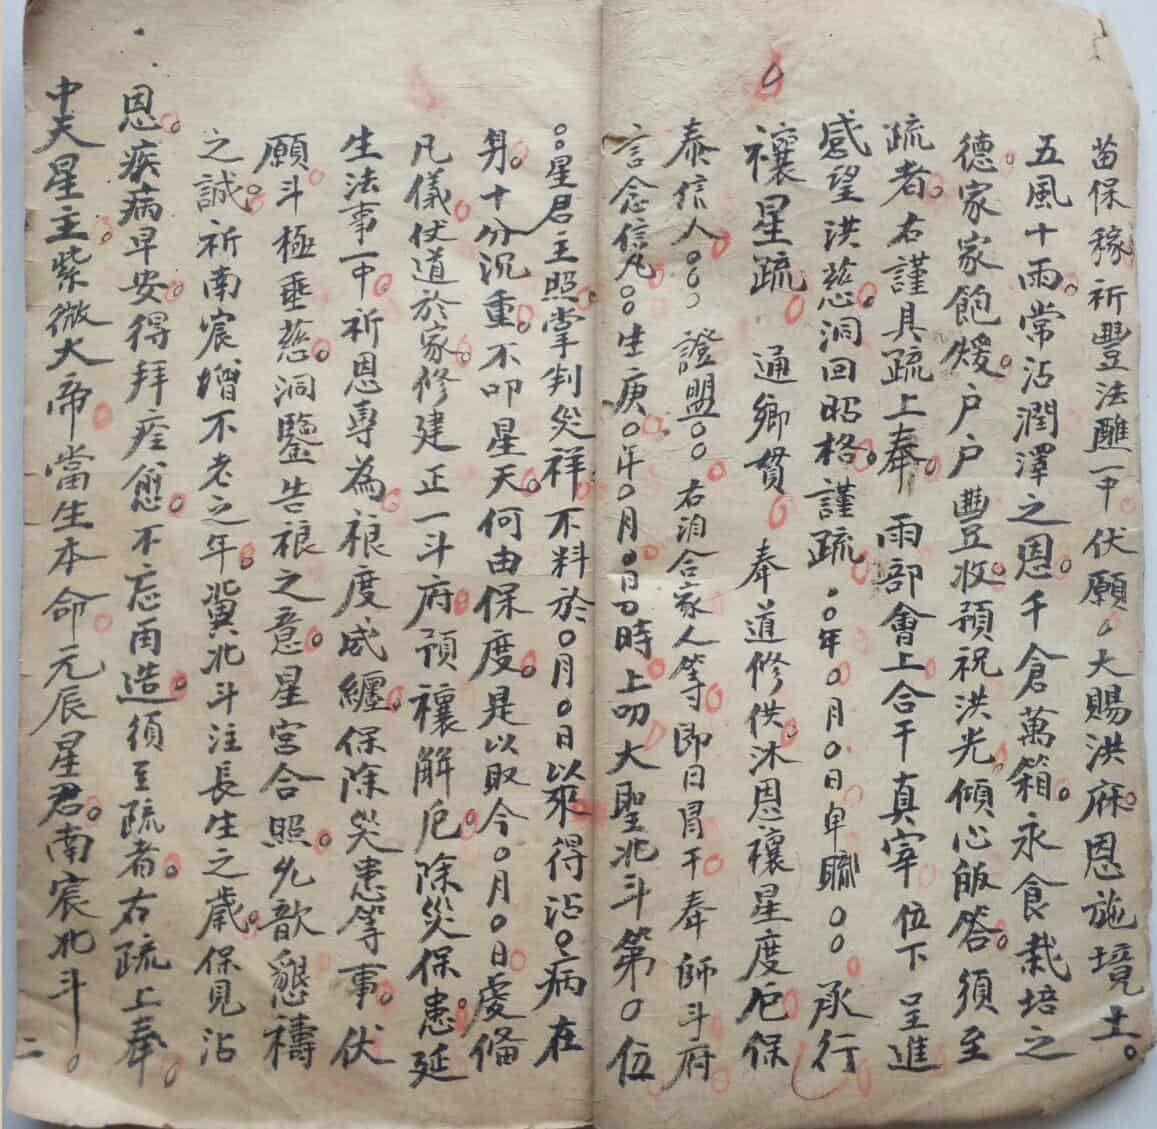 苗保稼祈豐法醮一中伏願大賜洪庥恩施境土。
五風十雨。常沾潤澤之恩。千倉萬箱。永食栽培之
德。家家飽煖。户户豐收。預祝洪光。傾心皈答。須至
疏者。右謹具疏上奉。雨部會上合干真宰位下呈進
感望洪慈。洞回昭格。謹疏。○年○月○日卑職○○承行
禳星疏 通鄉貫 奉道修供。沐恩禳星度厄保
泰信人○○○證盟○○右洎合家人等即日冒干奉師斗府
言念信凡○○生庚○年○月○日○時。上叨大聖北斗第○位
○星君主照。掌判災祥。不料於○月○日以來得沾○病在
身。十分沉重。不叩星天。何由保度。是以取今○月○日虔備
凡儀仗道於家。修建正一斗府預禳解厄。除災保患。延
生法事一中。祈恩專為禄度咸纏。保除災患等事。伏
願斗極垂慈。洞鑒告禄之意。星宮合照。允歆懇禱
之誠。祈南宸增不老之年。冀北斗注長生之歲。保見沾
恩。疾病早安。得拜痊愈。不忘甬造。須至疏者。右疏上奉。
中天星主紫微大帝當生本命元辰星君。南宸北斗。
二